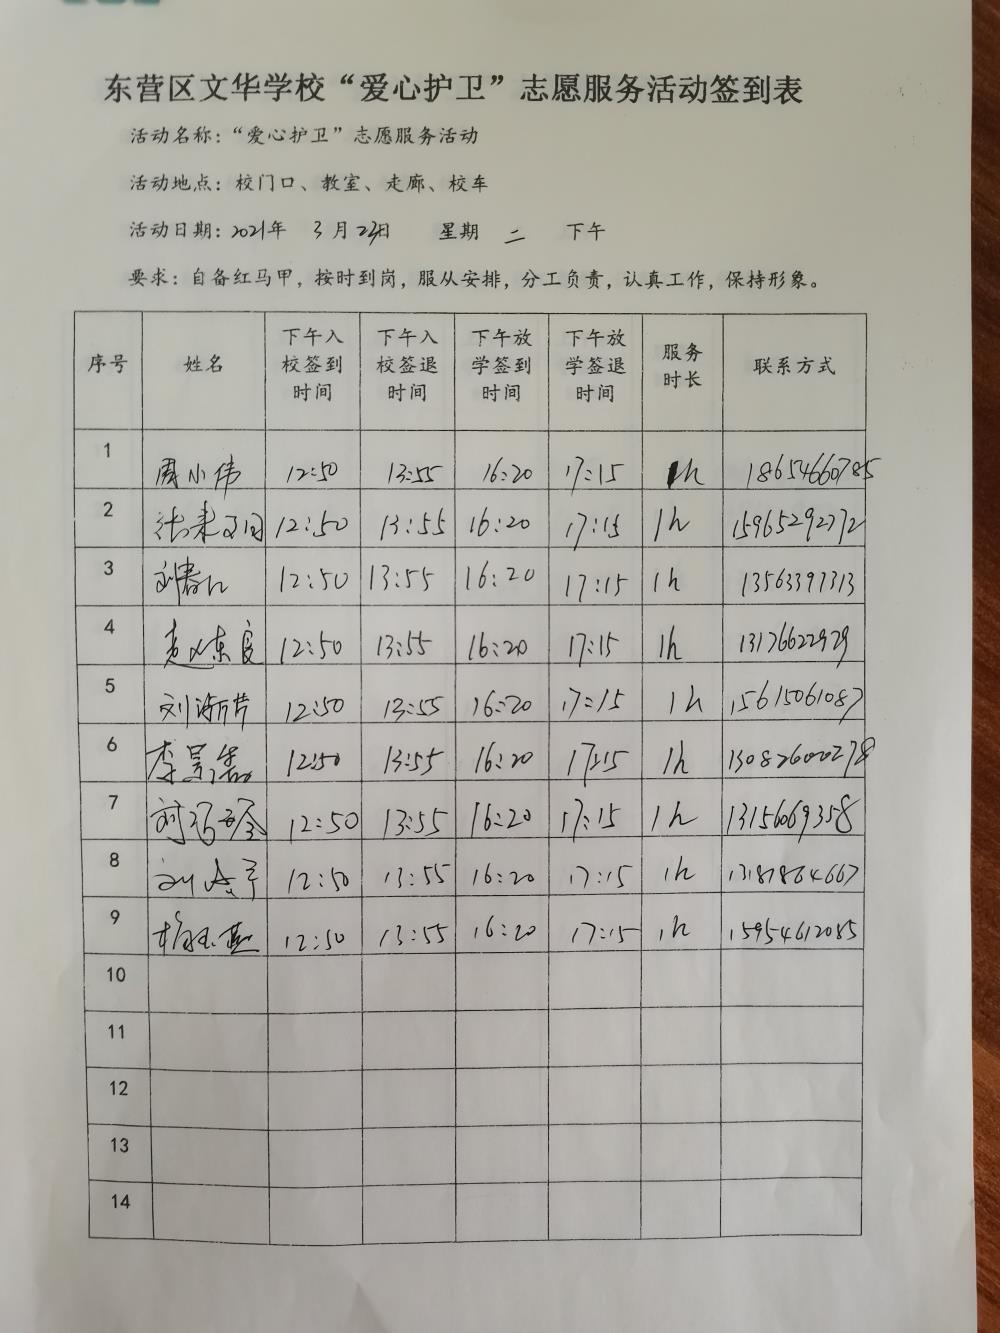 东营区文华学校“爱心护卫”志愿服务活动签到表
活动名称：“爱心护卫”志愿服务活动
活动地点：校门口、教室、走廊、校车
活动日期：2021年 3月23日 星期 二 下午
要求：自备红马甲，按时到岗，服从安排，分工负责，认真工作，保持形象。
序号 姓名 下午入校签到时间 下午入校签退时间 下午放学签到时间 下午放学签退时间 服务时长 联系方式
1 周小伟 12:50 13:55 16:20 17:15 1h 18654660785
2 12:50 13:55 16:20 17:15 1h 15965292772
3 12:50 13:55 16:20 17:15 1h 13563397313
4 12:50 13:55 16:20 17:15 1h 13176622979
5 12:50 13:55 16:20 17:15 1h 15615061087
6 12:50 13:55 16:20 17:15 1h 13082600278
7 12:50 13:55 16:20 17:15 1h 13156069358
8 12:50 13:55 16:20 17:15 1h 13187864667
9 12:50 13:55 16:20 17:15 1h 15954612085
10
11
12
13
14